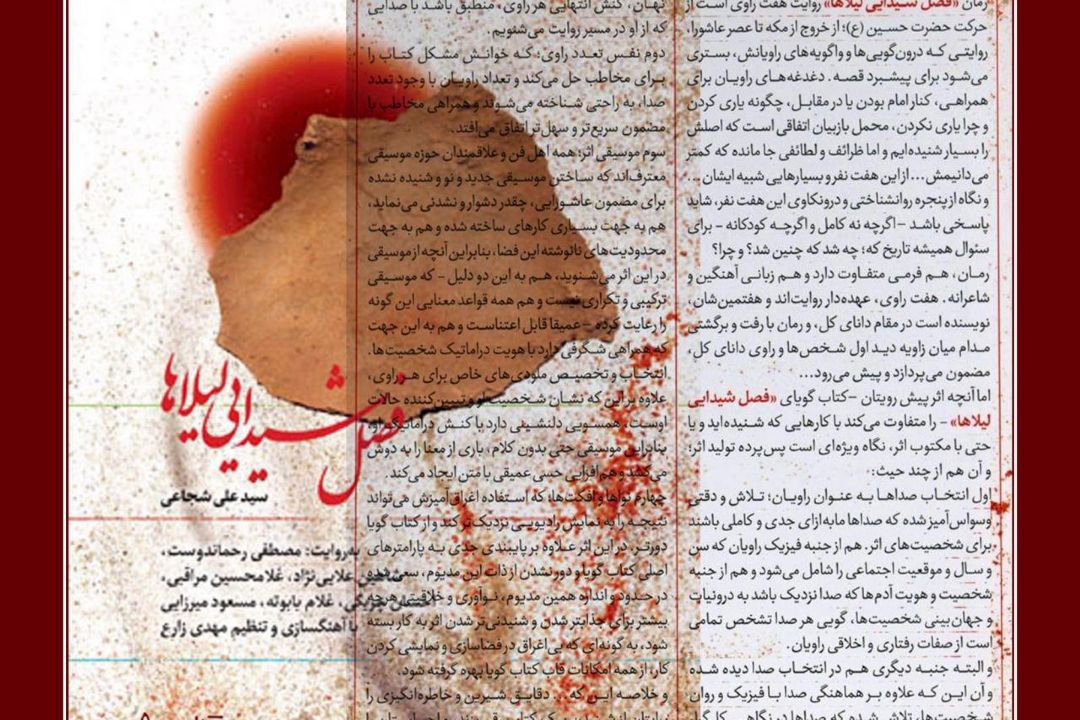 رمان «فصل شیدایی لیلاها» روایت هفت راوی است از
حرکت حضرت حسین (ع)؛ از خروج از مکه تا عصر عاشورا،
روایتی که درون‌گویی‌ها و واگویه‌های راویانش، بستری
می‌شود برای پیشبرد قصه. دغدغه‌های راویان برای
همراهی، کنار امام بودن یا در مقابل، چگونه یاری کردن
و چرا یاری نکردن، محمل بازبیان اتفاقی است که اصلش
را بسیار شنیده‌ایم و اما ظرائف و لطائفی جا مانده که کمتر
می‌دانیمش... از این هفت نفر و بسیارهایی شبیه ایشان...
و نگاه از پنجره روانشناختی و درونکاوی این هفت نفر، شاید
پاسخی باشد -اگرچه نه کامل و اگرچه کودکانه- برای
سئوال همیشه تاریخ که؛ چه شد که چنین شد؟ و چرا؟
رمان، هم فرمی متفاوت دارد و هم زبانی آهنگین و
شاعرانه. هفت راوی، عهده‌دار روایت‌اند و هفتمین‌شان،
نویسنده است در مقام دانای کل، و رمان با رفت و برگشتی
مدام میان زاویه دید اول شخص‌ها و راوی دانای کل،
مضمون می‌پردازد و پیش می‌رود...
اما آنچه اثر پیش رویتان -کتاب گویای «فصل شیدایی
لیلاها»- را متفاوت می‌کند با کارهایی که شنیده‌اید و یا
حتی با مکتوب اثر، نگاه ویژه‌ای است پس پرده تولید اثر؛
و آن هم از چند حیث:
اول انتخاب صداها به عنوان راویان؛ تلاش و دقتی
وسواس‌آمیز شده که صداها مابه‌ازای جدی و کاملی باشند
برای شخصیت‌های اثر. هم از جنبه فیزیک راویان که سن
و سال و موقعیت اجتماعی را شامل می‌شود و هم از جنبه
شخصیت و هویت آدم‌ها که صدا نزدیک باشد به درونیات
و جهان‌بینی شخصیت‌ها، گویی هر صدا تشخص تمامی
است از صفات رفتاری و اخلاقی راویان.
و البته جنبه دیگری هم در انتخاب صدا دیده شده
و آن این که علاوه بر هماهنگی صدا با فیزیک و روان
شخصیت‌ها، تلاش شده که صداها در نگاهی
نهان، کنش انتهایی هر راوی، منطبق باشد با صدایی
که از او در مسیر روایت می‌شنویم.
دوم نفس تعدد راوی؛ که خوانش مشکل کتاب را
برای مخاطب حل می‌کند و تعداد راویان با وجود تعدد
صدا، به راحتی شناخته می‌شوند و همراهی مخاطب با
مضمون سریع‌تر و سهل‌تر اتفاق می‌افتد.
سوم موسیقی اثر؛ همه اهل فن و علاقمندان حوزه موسیقی
معترف‌اند که ساختن موسیقی جدید و نو و شنیده نشده
برای مضمون عاشورایی، چقدر دشوار و نشدنی می‌نماید،
هم به جهت بسیاری کارهای ساخته شده و هم به جهت
محدودیت‌های نانوشته این فضا، بنابراین آنچه از موسیقی
در این اثر می‌شنوید، هم به این دو دلیل - که موسیقی
ترکیبی و تکراری نیست و هم همه قواعد معنایی این گونه
را رعایت کرده - عمیقا قابل اعتناست و هم به این جهت
که همراهی شگرفی دارد با هویت دراماتیک شخصیت‌ها.
انتخاب و تخصیص ملودی‌های خاص برای هر راوی،
علاوه بر این که نشان شخصیت او و تبیین کننده حالات
اوست، همسویی دلنشینی دارد با کنش دراماتیک او،
بنابراین موسیقی حتی بدون کلام، باری از معنا را به دوش
می‌کشد و هم‌افزایی حسی عمیقی با متن ایجاد می‌کند
چهارم نواها و افکت‌ها، که استفاده اغراق‌آمیزش می‌تواند
نتیجه را به نمایش رادیویی نزدیک‌تر کند و از کتاب گویا
دورتر، در این اثر علاوه بر پایبندی جدی به پارامترهای
اصلی کتاب گویا و دور نشدن از ذات این مدیوم، سعی شده
در حدود و اندازه همین مدیوم، نوآوری و خلاقیتی هرچه
بیشتر برای جذاب‌تر شدن و شنیدنی‌تر شدن اثر به کار بسته
شود، به گونه‌ای که بی‌اغراق در فضاسازی و نمایشی کردن
کار، از همه امکانات قاب کتاب گویا بهره گرفته شود.
و خلاصه این که... دقایق شیرین و خاطره‌انگیزی را
فصل شیدایی لیلاها
سید علی شجاعی
به‌روایت: مصطفی رحماندوست،
علایی‌نژاد، غلامحسین مراقبی،
غلام بابوته، مسعود میرزایی
با آهنگسازی و تنظیم مهدی زارع